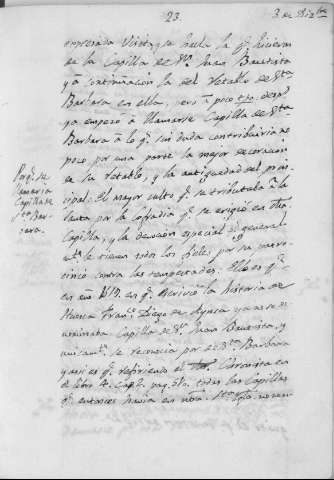 23.
3 de Dizbre
expresada Visita, que hacia la que hicieron
en la Capilla de Sn. Juan Bautista
y a continuación la del Retablo de Sta.
Barbara en ella, pero a poco tpo. despues
ya empezó a llamarse Capilla de Sta.
Barbara a lo qe. sin duda contribuiria no
poco por una parte la mejor decoracion
de su retablo, y la antiguedad del prin-
cipal: El mayor culto qe. se tributaba a la
Santa por la cofradia qe. se erigió en dha.
Capilla, y la devoción especial qe. general
mte. la tienen todos los fieles, por su patro-
cinio contra las tempestades. Ello es qe.
en año 1619. en qe. escrivia la historia de
Nuestra Diego de Aynsa ya no se de-
nominaba Capilla de Sn. Juan Bautista, y
unicamte. se reconocia por de Sta. Barbara
y asi es qe. refiriendo el Coronista en
el libro 4. Capo. pag. todas las Capillas
qe. entonces havia en nra. Sta. Yglª. no nom
Porque se
llamaria
Capilla de
Sta. Bar-
bara.